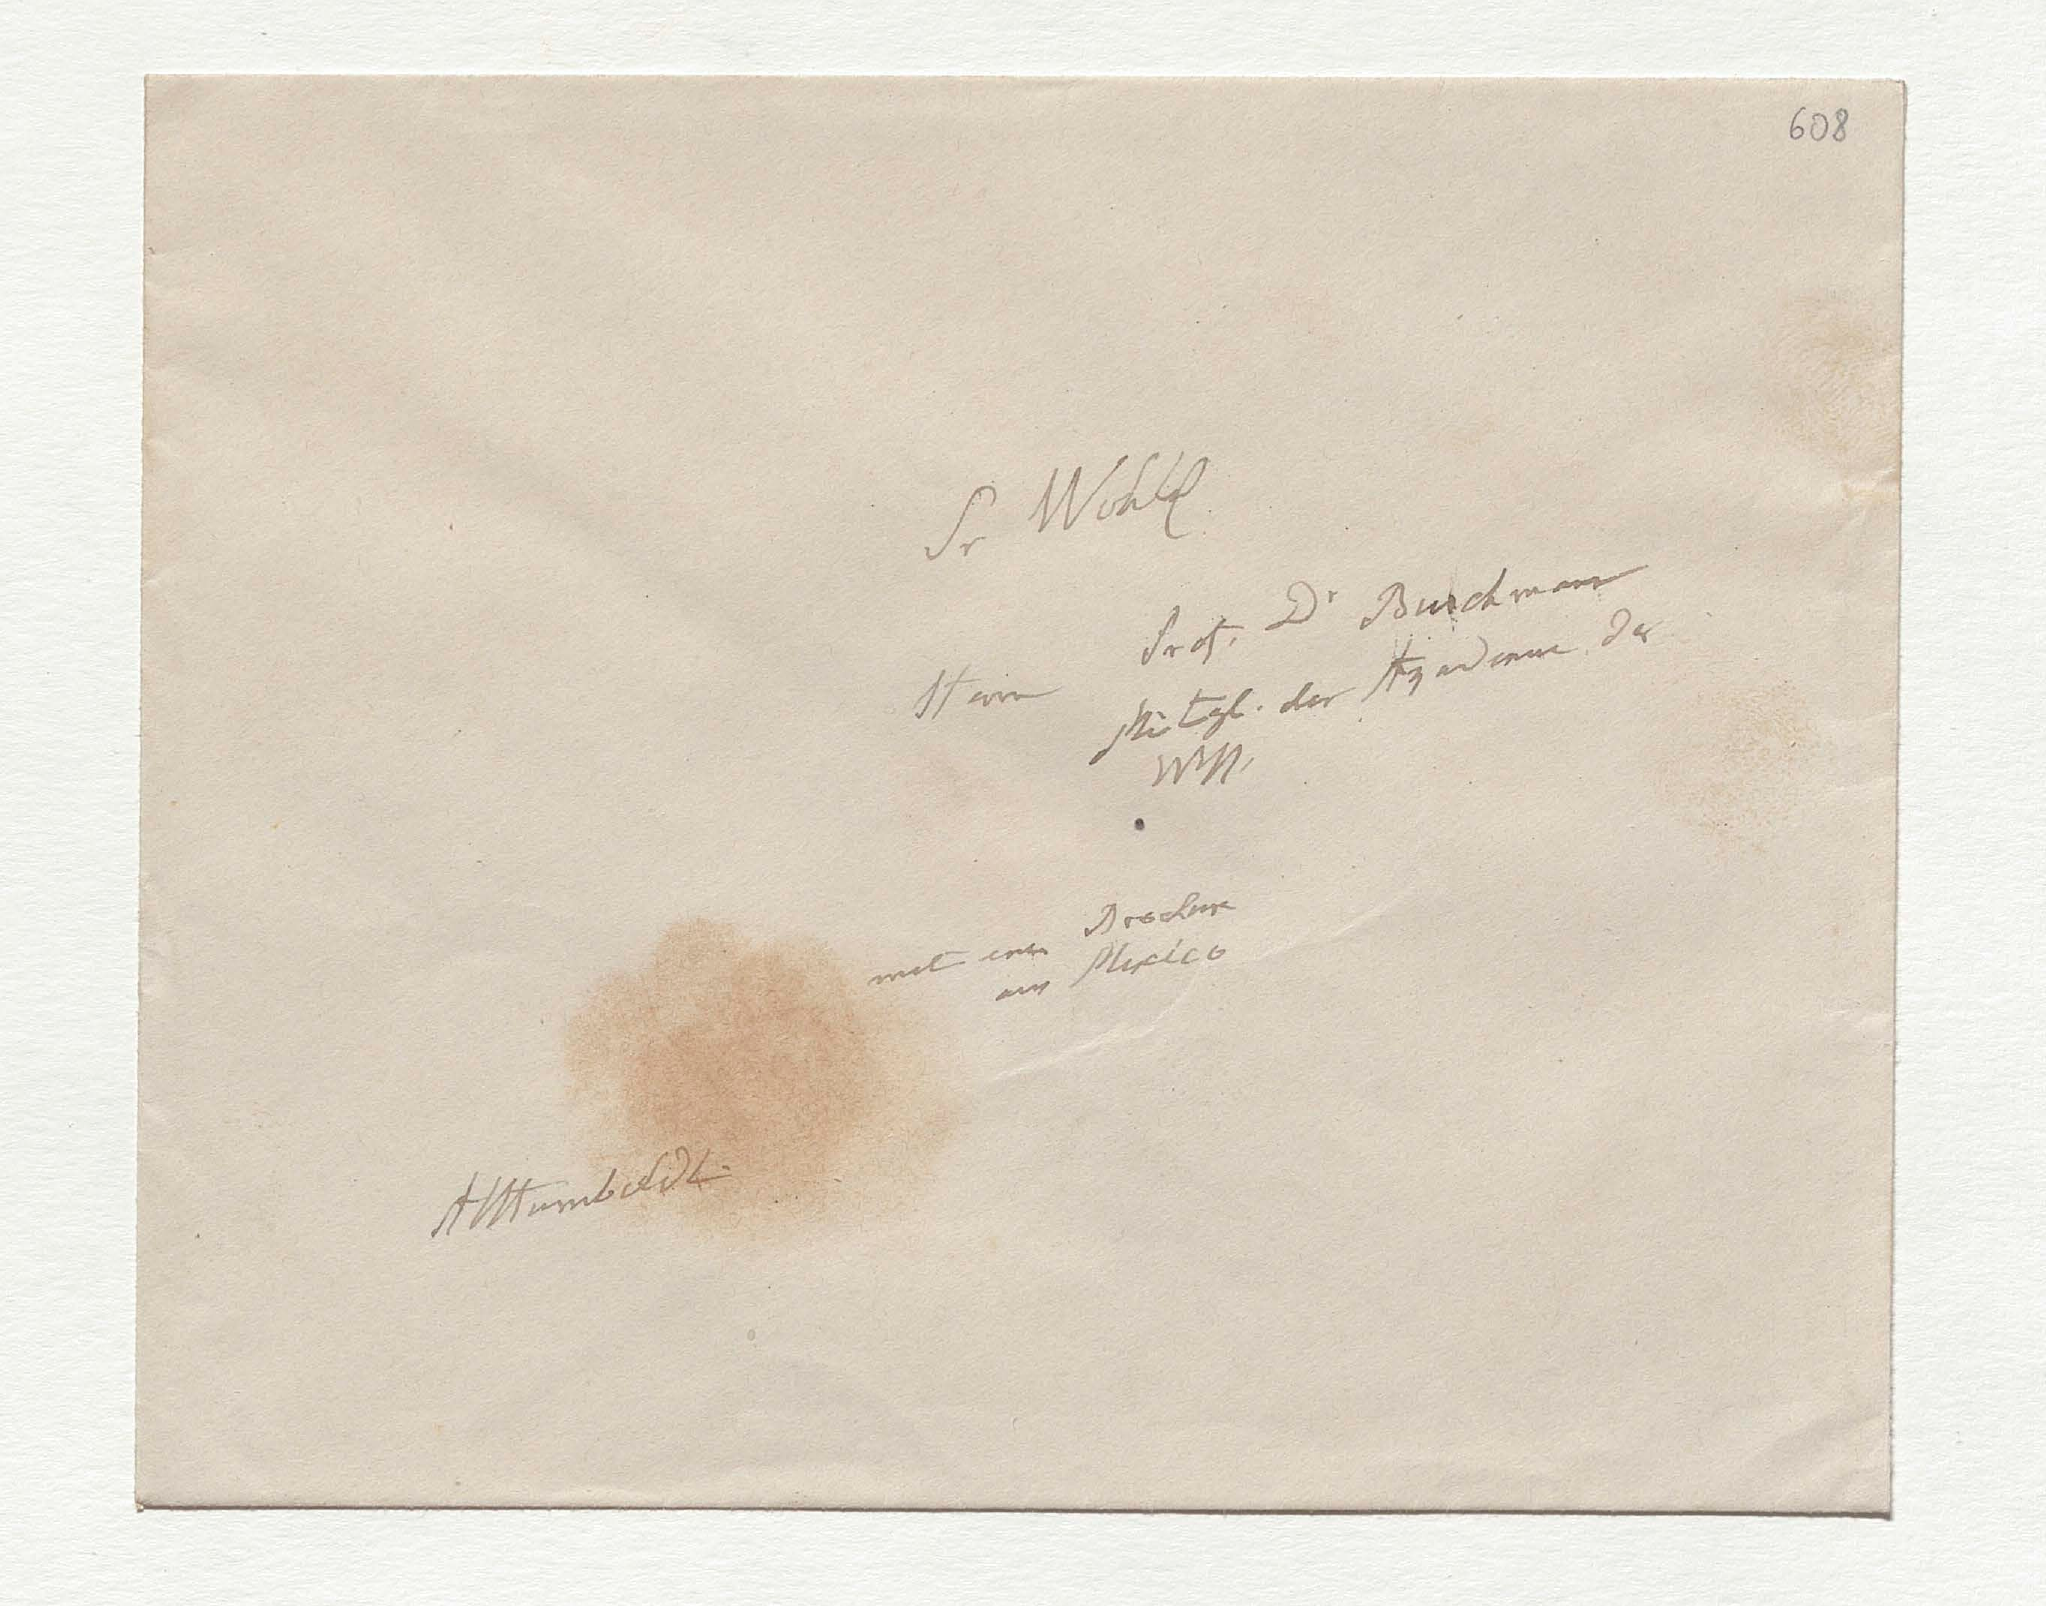 608
Sr Wohlg.
Herrn Prof. Dr Buschmann
Mitgl. der Academie der
Wiss.
mit einer Brochure
aus Mexico
AvHumboldt.